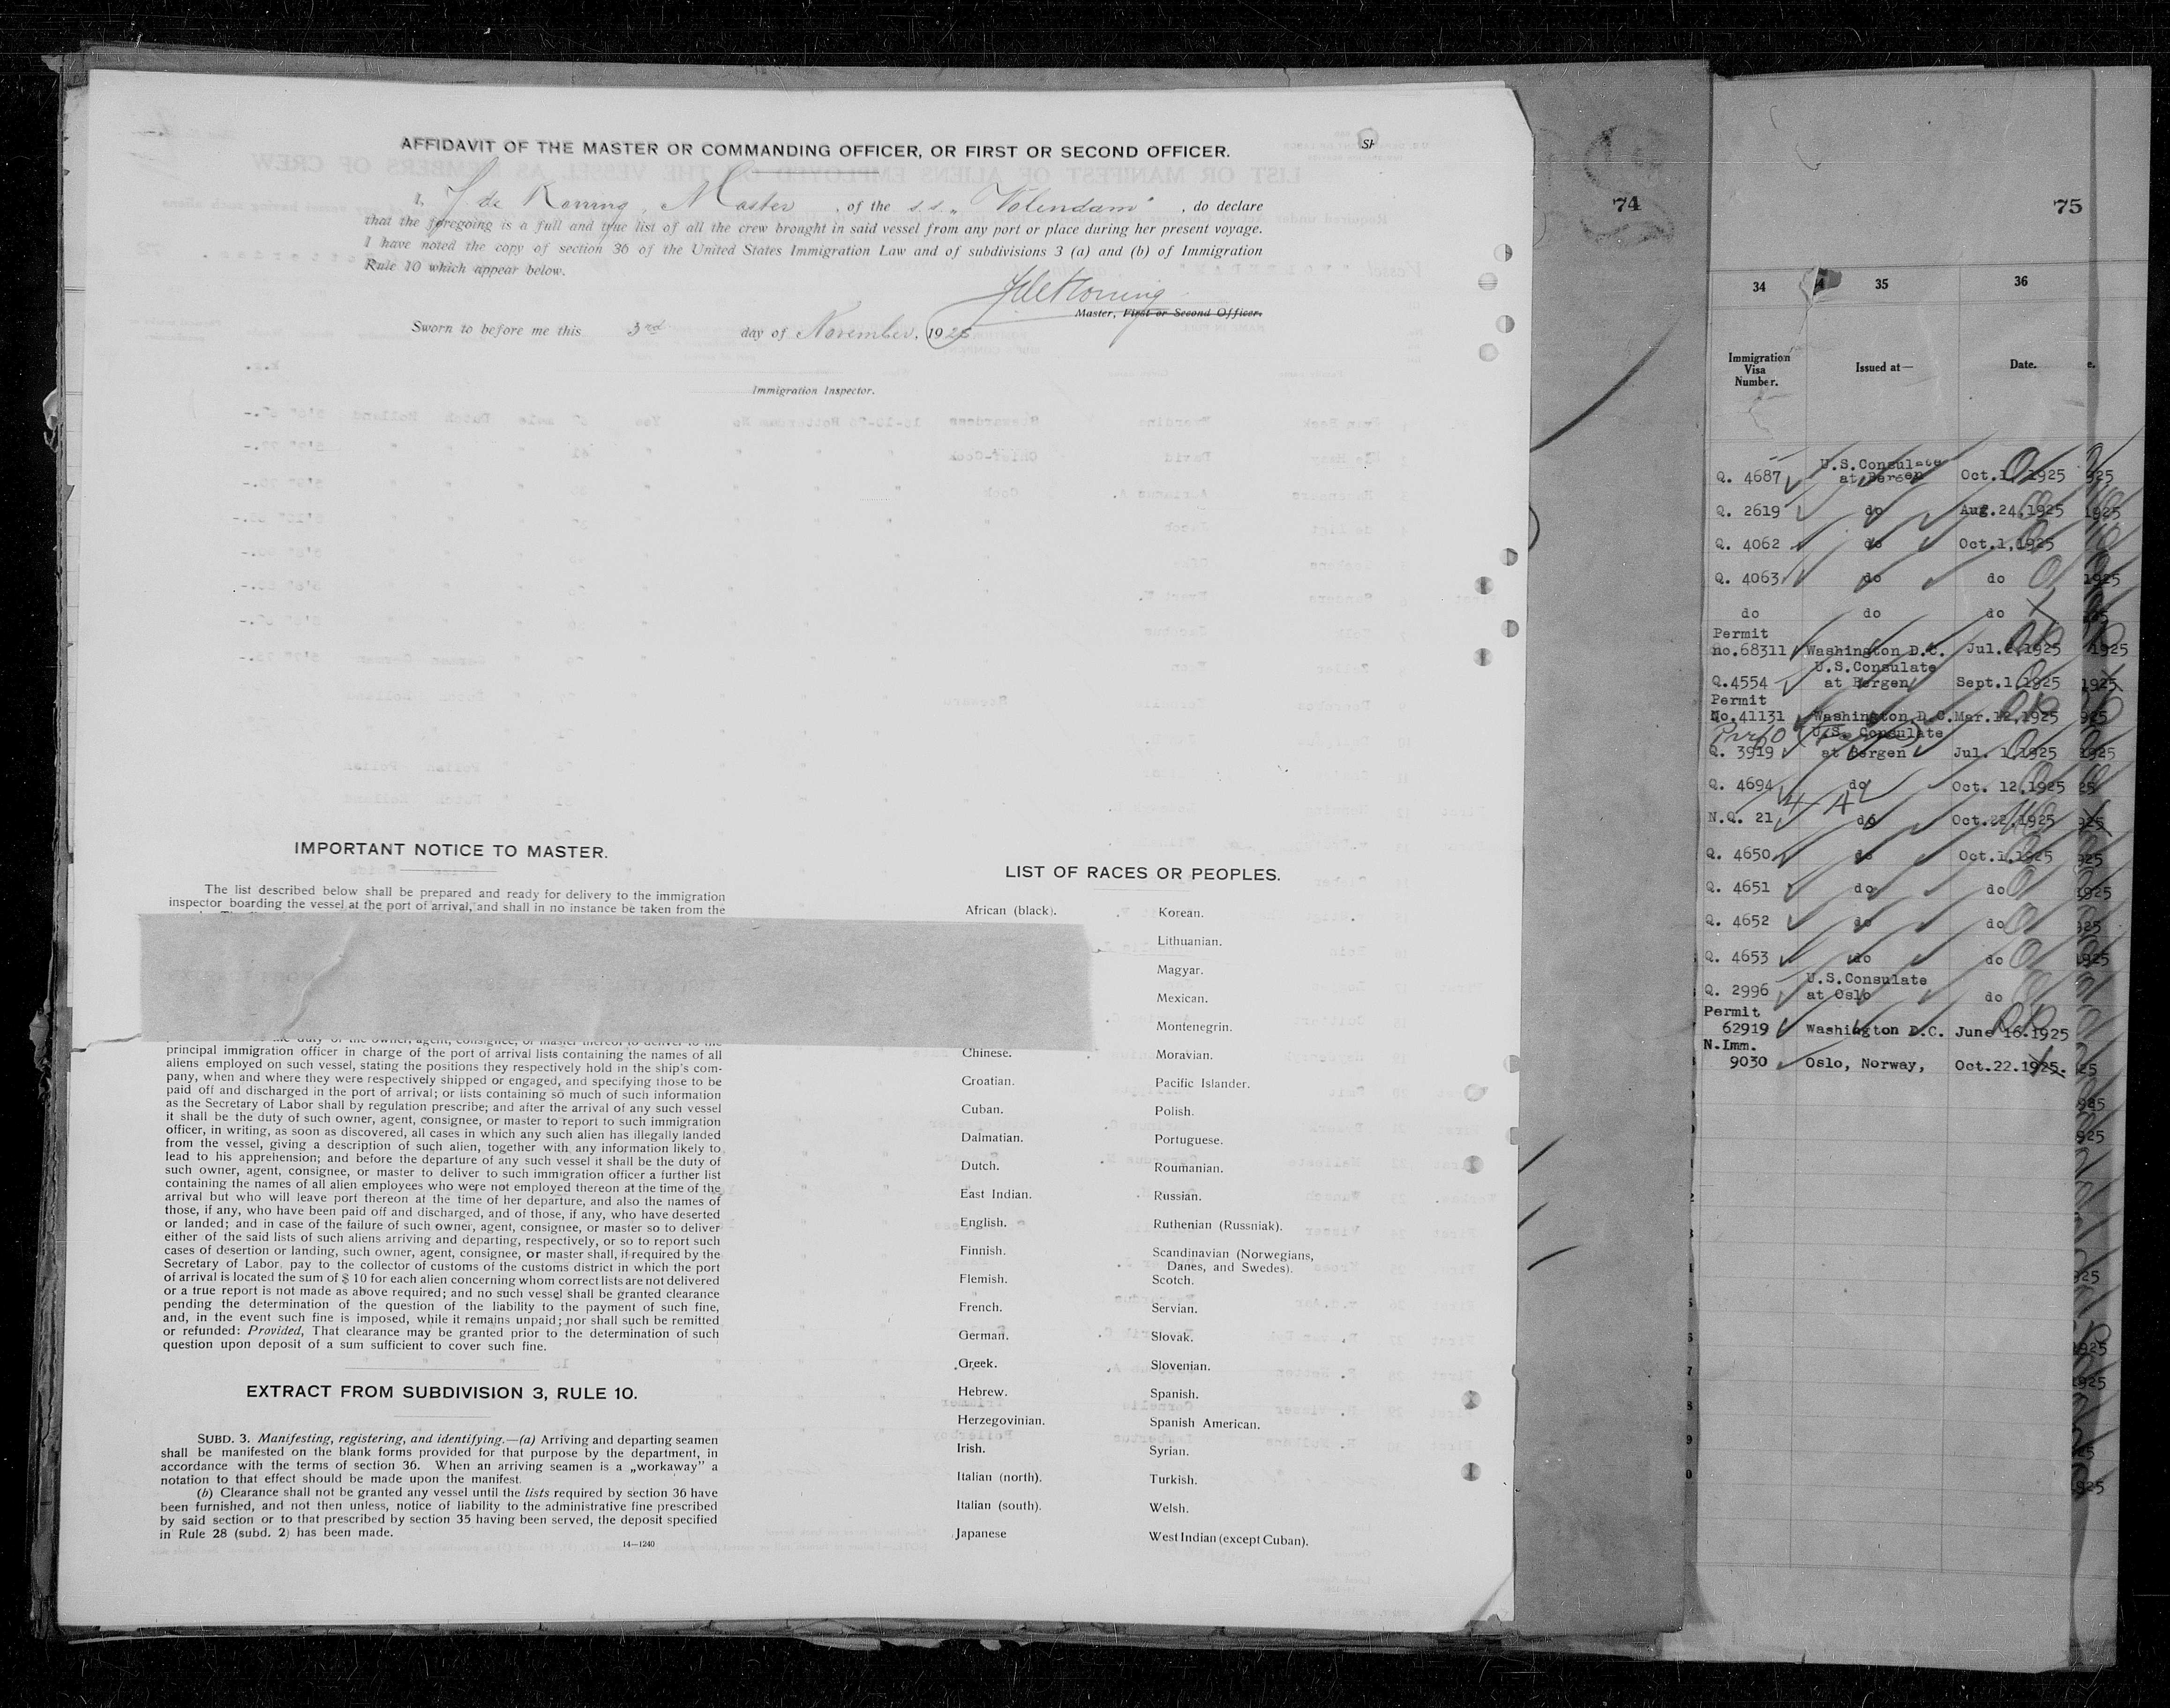 AFFIDAVIT OF THE MASTER OR COMMANDING OFFICER, OR FIRST OR SECOND OFFICER.
I, J de Koning, Master, of the s.s. „Volendam", do declare
that the foregoing is a full and true list of all the crew brought in said vessel from any port or place during her present voyage.
I have noted the copy of section 36 of the United States Immigration Law and of subdivisions 3 (a) and (b) of Immigration
Rule 10 which appear below.
JdeKoning
Master, First or Second Officer.
Sworn to before me this 3rd day of November, 1925
Immigration Inspector.
IMPORTANT NOTICE TO MASTER.
The list described below shall be prepared and ready for delivery to the immigration
inspector boarding the vessel at the port of arrival, and shall in no instance be taken from the
the duty of the owner, agent, consignee, or master thereof to deliver to the
principal immigration officer in charge of the port of arrival lists containing the names of all
aliens employed on such vessel, stating the positions they respectively hold in the ship's com-
pany, when and where they were respectively shipped or engaged, and specifying those to be
paid off and discharged in the port of arrival; or lists containing so much of such information
as the Secretary of Labor shall by regulation prescribe; and after the arrival of any such vessel
it shall be the duty of such owner, agent, consignee, or master to report to such immigration
officer, in writing, as soon as discovered, all cases in which any such alien has illegally landed
from the vessel, giving a description of such alien, together with any information likely to
lead to his apprehension; and before the departure of any such vessel it shall be the duty of
such owner, agent, consignee, or master to deliver to such immigration officer a further list
containing the names of all alien employees who were not employed thereon at the time of the
arrival but who will leave port thereon at the time of her departure, and also the names of
those, if any, who have been paid off and discharged, and of those, if any, who have deserted
or landed; and in case of the failure of such owner, agent, consignee, or master so to deliver
either of the said lists of such aliens arriving and departing, respectively, or so to report such
cases of desertion or landing, such owner, agent, consignee, or master shall, if required by the
Secretary of Labor, pay to the collector of customs of the customs district in which the port
of arrival is located the sum of $ 10 for each alien concerning whom correct lists are not delivered
or a true report is not made as above required; and no such vessel shall be granted clearance
pending the determination of the question of the liability to the payment of such fine,
and, in the event such fine is imposed, while it remains unpaid; nor shall such be remitted
or refunded: Provided, That clearance may be granted prior to the determination of such
question upon deposit of a sum sufficient to cover such fine.
EXTRACT FROM SUBDIVISION 3, RULE 10.
SUBD. 3. Manifesting, registering, and identifying.—(a) Arriving and departing seamen
shall be manifested on the blank forms provided for that purpose by the department, in
accordance with the terms of section 36. When an arriving seamen is a „workaway" a
notation to that effect should be made upon the manifest.
(b) Clearance shall not be granted any vessel until the lists required by section 36 have
been furnished, and not then unless, notice of liability to the administrative fine prescribed
by said section or to that prescribed by section 35 having been served, the deposit specified
in Rule 28 (subd. 2) has been made.
14—1240
LIST OF RACES OR PEOPLES.
African (black).
Chinese.
Croatian.
Cuban.
Dalmatian.
Dutch.
East Indian.
English.
Finnish.
Flemish.
French.
German.
Greek.
Hebrew.
Herzegovinian.
Irish.
Italian (north).
Italian (south).
Japanese
Korean.
Lithuanian.
Magyar.
Mexican.
Montenegrin.
Moravian.
Pacific Islander.
Polish.
Portuguese.
Roumanian.
Russian.
Ruthenian (Russniak).
Scandinavian (Norwegians,
Danes, and Swedes).
Scotch.
Servian.
Slovak.
Slovenian.
Spanish.
Spanish American.
Syrian.
Turkish.
Welsh.
West Indian (except Cuban).
74
75
34 35 36
Immigration Visa Number. Issued at— Date.
Q. 4687 U.S.Consulate at Bergen Oct.1, 1925
Q. 2619 do Aug.24,1925
Q. 4062 do Oct.1,1925
Q. 4063 do do
do do do
Permit
no.68311 Washington D.C. Jul. 1925
Q.4554 U.S.Consulate at Bergen Sept.1,1925
Permit
No.41131 Washington D.C. Mar.12,1925
Q. 3919 U.S. Consulate at Bergen Jul. 1,1925
Q. 4694 do Oct. 12,1925
N.Q. 21 do Oct.22,1925
Q. 4650 do Oct.1,1925
Q. 4651 do do
Q. 4652 do do
Q. 4653 do do
Q. 2996 U.S.Consulate at Oslo do
Permit
62919 Washington D.C. June 16.1925
N.Imm.
9030 Oslo, Norway, Oct.22.1925.